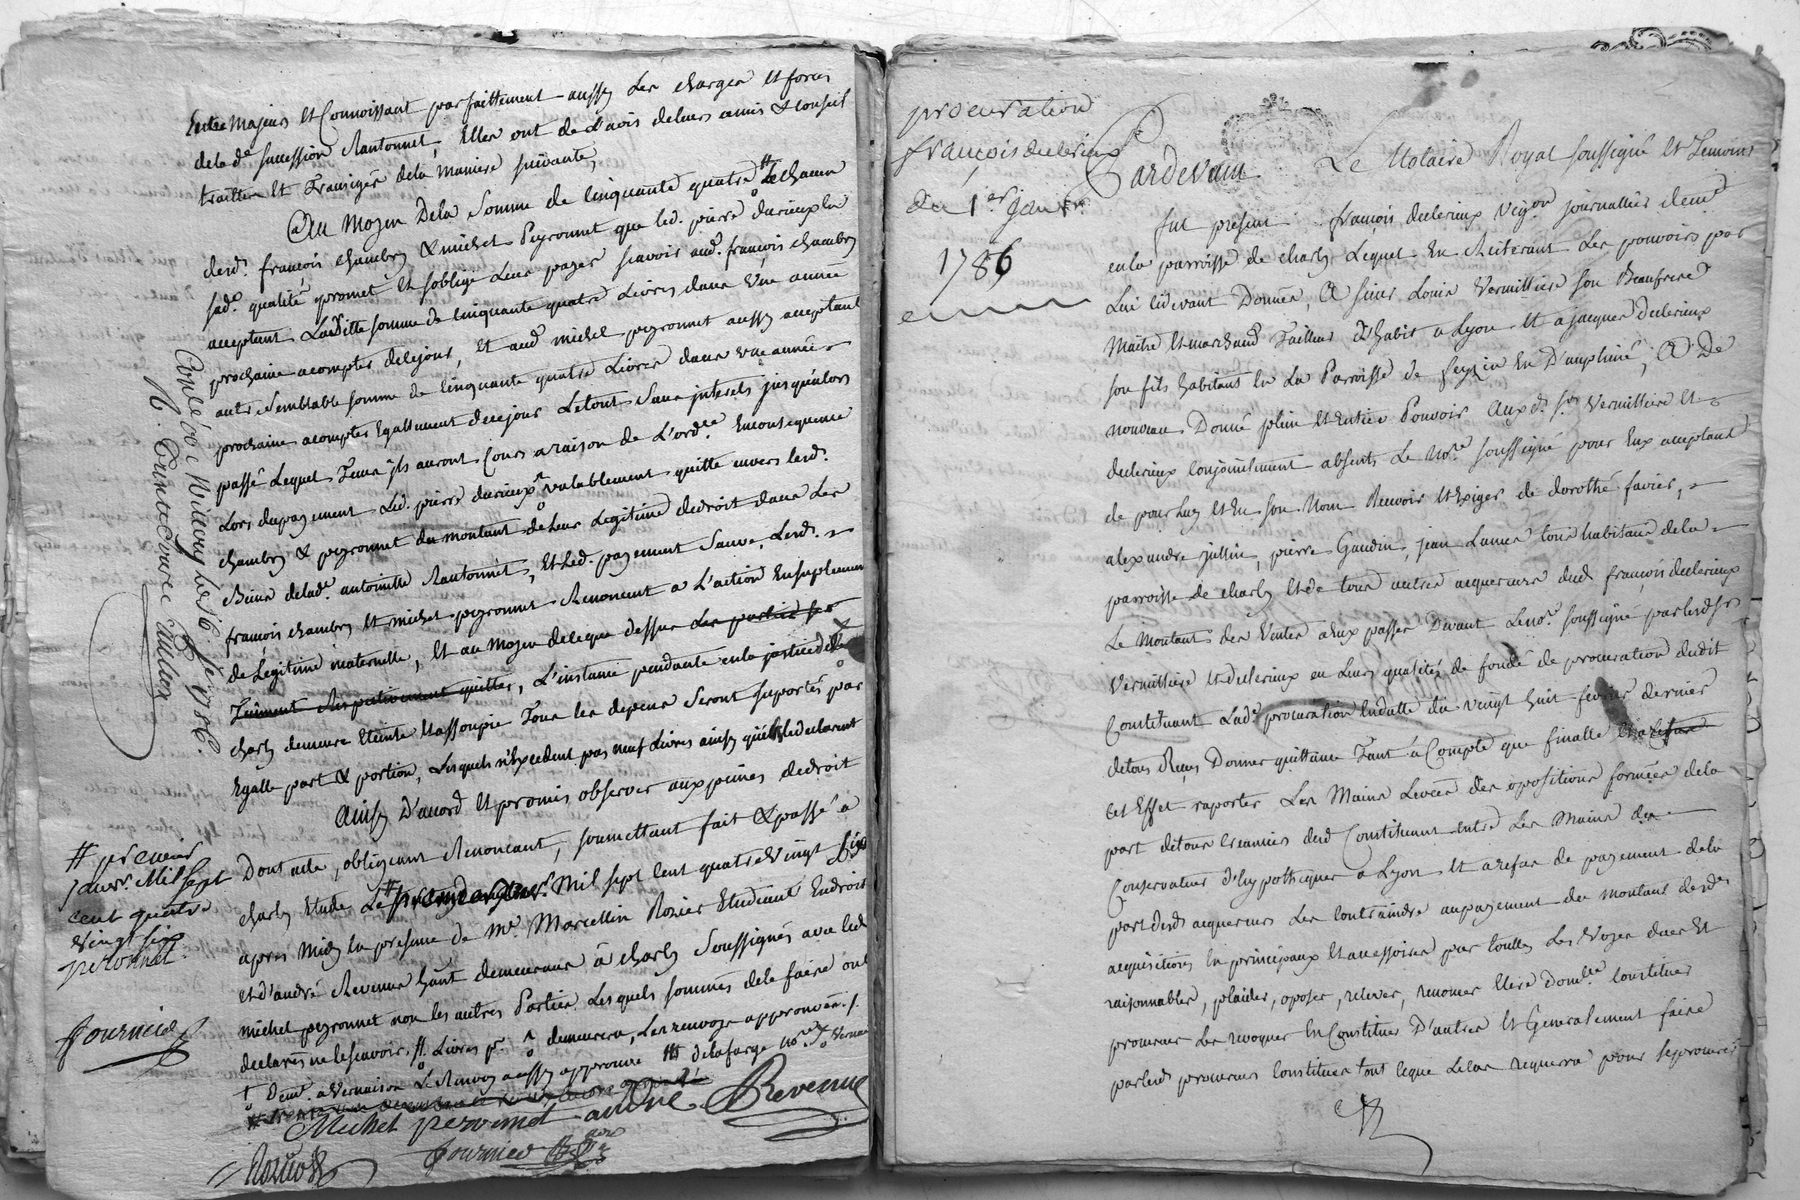 Estre Majeurs Et Connoissant parfaittement aussy Les charges Et forces
dela de. succession Rantonnet, Elles ont de L'avis deleurs amis & Conseil
traittés Et Transigés dela Maniere suivante,
Au Moyen Dela Somme de Cinquante quatre # Le chacun
desd. françois chambry & michel Peyronnet que led. pierre durieux En
sad. qualité promet Et soblige Leur payer scavoir aud. françois chambry
acceptant Laditte somme de Cinquante quatre Livres dans Une année
prochaine acompter decejour, Et aud. michel peyronnet aussy acceptant
autre semblable somme de Cinquante quatre Livres dans une année
prochaine acompter Egallement decejour Letout Sans interets jusqu'alors
passé Lequel Tems ils auront Cours araison de L'ordce. Enconsequence
Lors dupayement Led. pierre durieux valablement quitte envers lesd.
chambry & peyronnet du montant de Leur Legitime dedroit dans Les
Biens delad. antoinette Rantonnet, Et Led. payement Sauve, Lesd.
françois chambry Et michel peyronnet Renoncent a L'action Ensuplement
de Legitime maternelle, Et au Moyen deceque dessus Les parties se
Tiennent Respectivement quittes, L'instance pendante enla justice de
charly demeure Eteinte Et assoupie Tous les depens seront suportés par
Egalle part & portion, Lesquels n'Excedent pas neuf Livres ainsy qu'ils ledeclarent
Ainsy D'accord Et promis observer aux peines dedroit
Dont acte, obligeant Renoncant, soumettant fait & passé a
charly Etude Le # Mil sept Cent quatre Vingt six
apres Midy En presence de Me. Marcellin Rozier Etudiant Endroit
Et d'andré Revenu demeurant à charly Soussignés avec led.
michel peyronnet non les autres Parties Lesquels sommés dele faire ont
declarés ne le scavoir, #. Livres demeurera, Les renvoys approuvés
† dem. a Vernaison Le Renvoy aussy approuvé
Michel peronnet andré Revenu
Rozier fournier
Conlée a Millery le 16 jer. 1786.
# premier
janvr. Mil Sept
cent quatre
Vingt six
peronnet.
fournier
procuration
françois duclerieux
du 1er janvr.
1786
Pardevant Le Notaire Royal soussigné Et Temoins
fut présent françois duclerieux Vigon journallier demt.
enla parroisse de charly Lequel En Reiterant Les pouvoirs par
Lui cidevant Donnés, A sieur Louis Vermilliere son Beaufrere
Maitre Et marchand Tailleur d'habit a Lyon Et a jacques duclerieux
son fils habitant En La Parroisse de feyzin En D'auphiné, A De
nouveau Donné plein Et Entier Pouvoir Auxd. srs. Vermilliere Et
duclerieux Conjointement absents Le Nore. soussigné pour Eux acceptant
de pour Luy Et En son Nom Recevoir Et Exiger de dorothé favier,
alexandre jullin, pierre Gaudin, jean Lamer tous habitans dela
parroisse de charly Et de tous autres acquereurs dud. françois duclerieux
Le Montant des Ventes a Eux passées Devant Leno. soussigné par lesd. srs.
Vermilliere Et duclerieux en Leurs qualités de fondé de procuration dudit
Constituant Lade. procuration Endatte du vingt huit fevrier dernier
detous Reçus Donner quittance Tant a Compte que finalle
Cet Effet raporter Les Mains Levées des opositions formées dela
part detous Creanciers dud. Constituant entre Les Mains du
Conservateur d'hypotheques a Lyon Et arefus de payement dela
part desd. acquereurs Les Contraindre aupayement du montant desd.
acquisitions En principaux Et accessoires par touttes Les Voyes dues Et
raisonnables, plaider, oposer, relever, renoncer Elire domlle. Constituer
procureur Les revoquer En Constituer D'autres Et Generalement faire
parlesd. procureurs Constitués tout Ceque Lecas requerra pour